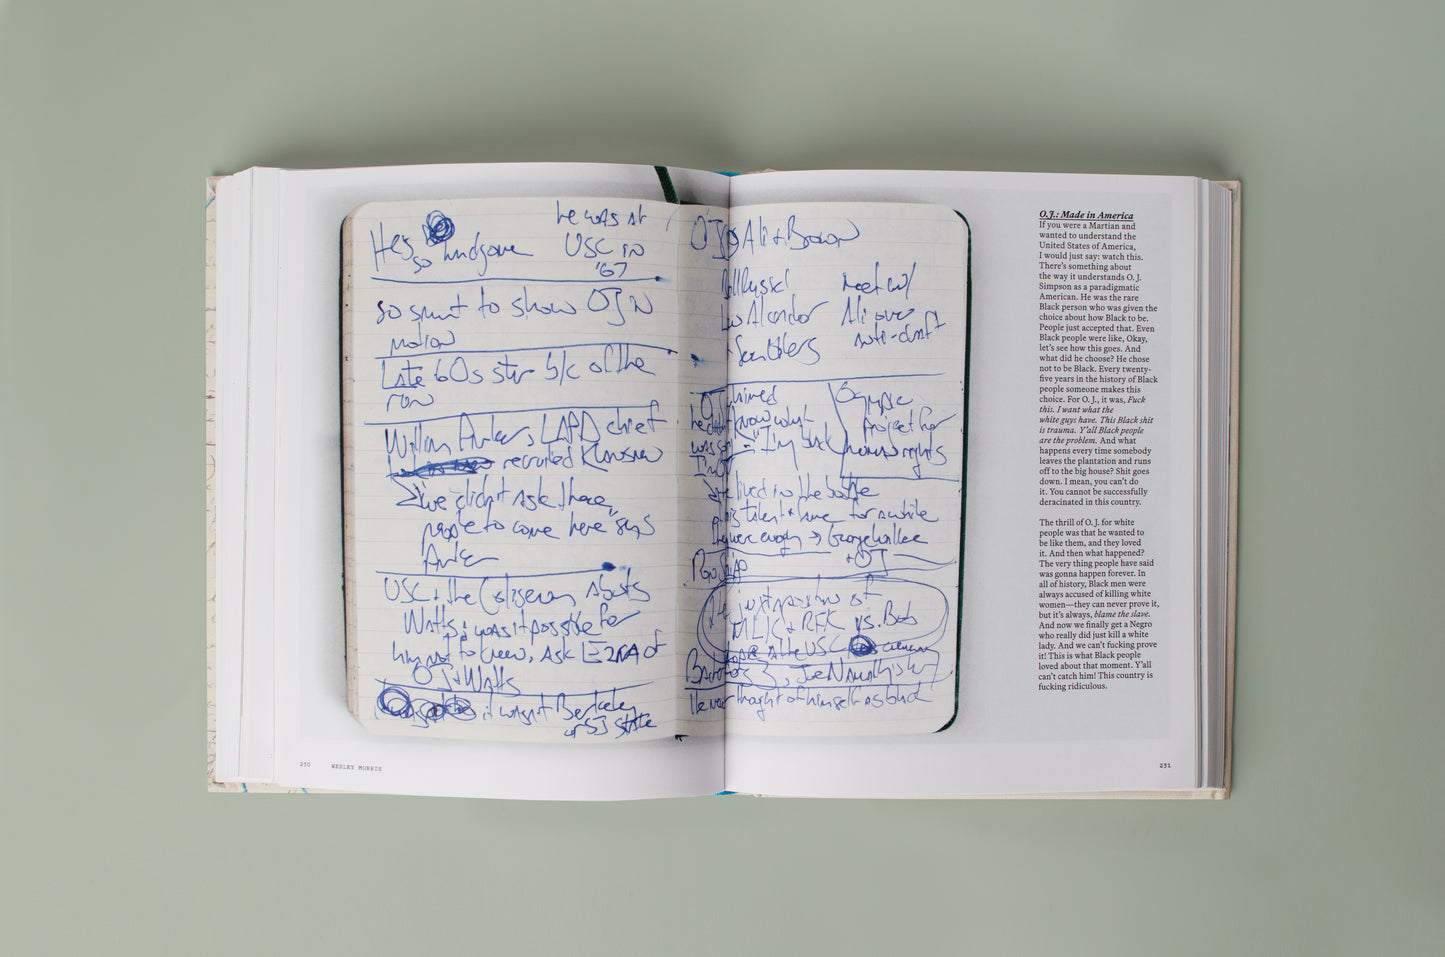 he was at
He's so handsome
USC in
'67
so smart to show OJ in
motion
Late 60s star b/c of the
row
William Parker, LAPD chief
recruited Klansmen
"we didn't ask these
people to come here" says
Parker
USC + the Coliseum abuts
Watts; was it possible for
him not to know, ask Ezra of
OJ + Watts
it wasn't Berkeley
or SJ State
OJ Ali + Brown
Bill Russell
Meet w/
Lew Alcindor
Ali over
anti-draft
claimed
Olympic
he didn't know what
project for
was
"I'm black
human rights
lived in the bubble
his talent + fame for a while
they were enough → George Wallace
+ OJ
the juxtaposition of
MLK + RFK vs. Bob
the USC
He never thought of himself as black
O.J.: Made in America
If you were a Martian and
wanted to understand the
United States of America,
I would just say: watch this.
There's something about
the way it understands O. J.
Simpson as a paradigmatic
American. He was the rare
Black person who was given the
choice about how Black to be.
People just accepted that. Even
Black people were like, Okay,
let's see how this goes. And
what did he choose? He chose
not to be Black. Every twenty-
five years in the history of Black
people someone makes this
choice. For O. J., it was, Fuck
this. I want what the
white guys have. This Black shit
is trauma. Y'all Black people
are the problem. And what
happens every time somebody
leaves the plantation and runs
off to the big house? Shit goes
down. I mean, you can't do
it. You cannot be successfully
deracinated in this country.
The thrill of O. J. for white
people was that he wanted to
be like them, and they loved
it. And then what happened?
The very thing people have said
was gonna happen forever. In
all of history, Black men were
always accused of killing white
women—they can never prove it,
but it's always, blame the slave.
And now we finally get a Negro
who really did just kill a white
lady. And we can't fucking prove
it! This is what Black people
loved about that moment. Y'all
can't catch him! This country is
fucking ridiculous.
230 WESLEY MORRIS
231